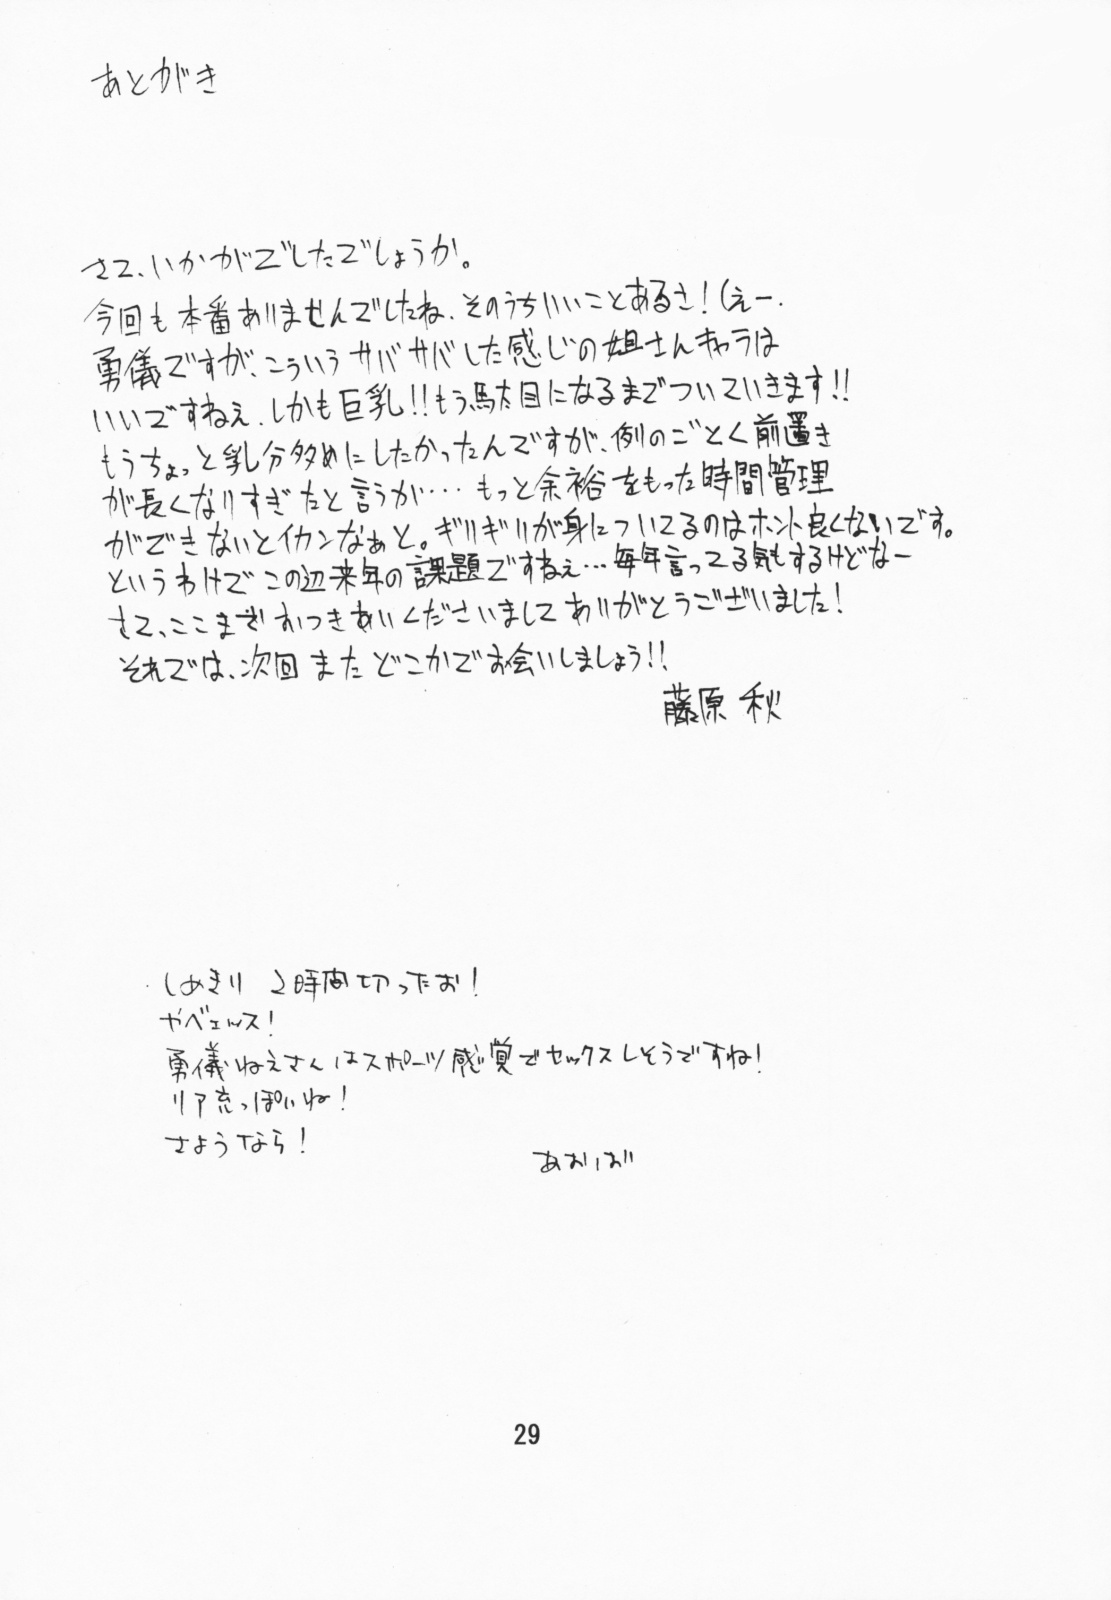 あとがき
さて、いかがでしたでしょうか。
今回も本番ありませんでしたね、そのうちいいことあるさ！(えー、
勇儀ですが、こういうサバサバした感じの姐さんキャラは
いいですねぇ、しかも巨乳!!もう駄目になるまでついていきます!!
もうちょっと乳分多めにしたかったんですが、例のごとく前置き
が長くなりすぎたと言うか…もっと余裕をもった時間管理
ができないとイカンなぁと。ギリギリが身についてるのはホント良くないです。
というわけでこの辺来年の課題ですねぇ…毎年言ってる気もするけどなー
さて、ここまでおつきあいくださいましてありがとうございました！
それでは、次回またどこかでお会いしましょう!!
藤原 秋
しめきり 2時間切ったお！
ヤベェッス！
勇儀ねえさんはスポーツ感覚でセックスしそうですね！
リア充っぽいね！
さようなら！
あおば
29